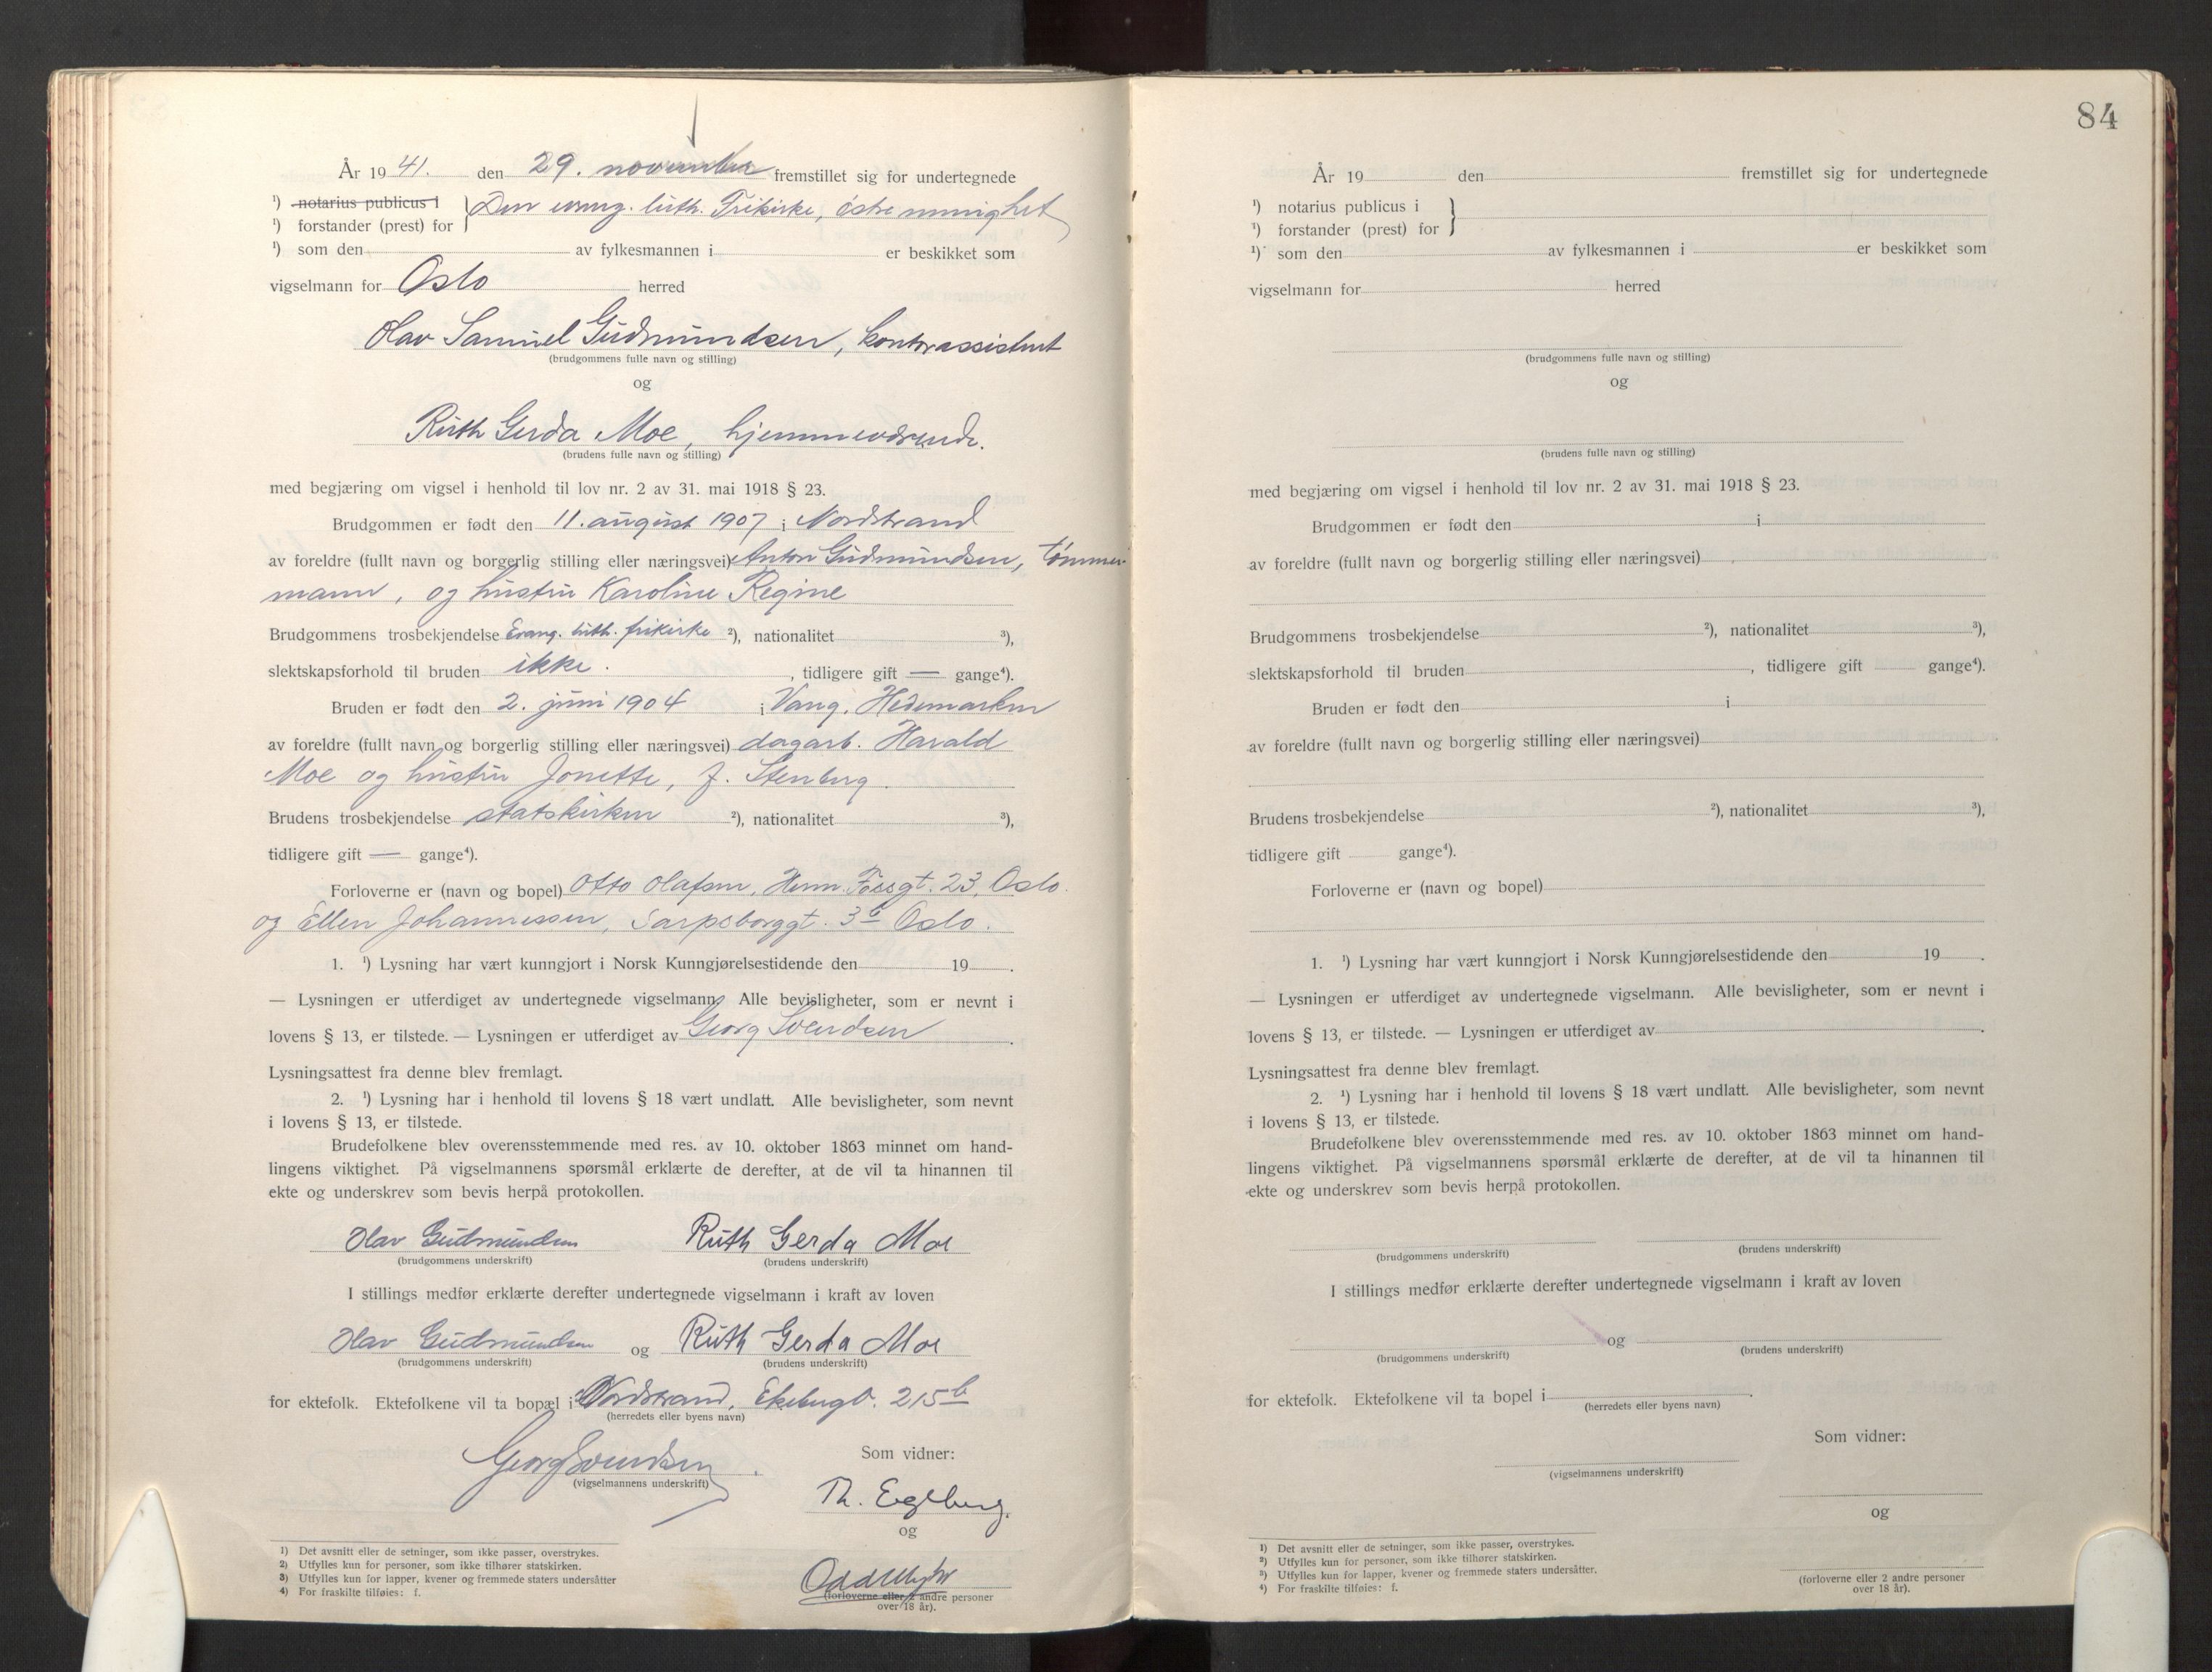 År 1941. den 29. november fremstillet sig for undertegnede
¹) notarius publicus i
¹) forstander (prest) for } Den evang. luth. Frikirke, østre menighet
¹) som den av fylkesmannen i er beskikket som
vigselmann for Oslo herred
Olav Samuel Gudmundsen, kontorassistent
(brudgommens fulle navn og stilling)
og
Ruth Gerda Moe, hjemmeværende.
(brudens fulle navn og stilling)
med begjæring om vigsel i henhold til lov nr. 2 av 31. mai 1918 § 23.
Brudgommen er født den 11. august 1907 i Nordstrand
av foreldre (fullt navn og borgerlig stilling eller næringsvei) Anton Gudmundsen, tømmer-
mann, og hustru Karoline Regine
Brudgommens trosbekjendelse Evang. luth. frikirke ²), nationalitet ³),
slektskapsforhold til bruden ikke. , tidligere gift — gange⁴).
Bruden er født den 2. juni 1904 i Vang, Hedemarken
av foreldre (fullt navn og borgerlig stilling eller næringsvei) dagarb. Harald
Moe og hustru Jonette, f. Stenberg.
Brudens trosbekjendelse statskirken ²), nationalitet ³),
tidligere gift — gange⁴).
Forloverne er (navn og bopel) Otto Olafsen, Herm. Fossgt. 23, Oslo.
og Ellen Johannessen, Sarpsborggt. 3 b Oslo.
1. ¹) Lysning har vært kunngjort i Norsk Kunngjørelsestidende den 19 .
— Lysningen er utferdiget av undertegnede vigselmann. Alle bevisligheter, som er nevnt i
lovens § 13, er tilstede. — Lysningen er utferdiget av Georg Svendsen .
Lysningsattest fra denne blev fremlagt.
2. ¹) Lysning har i henhold til lovens § 18 vært undlatt. Alle bevisligheter, som nevnt
i lovens § 13, er tilstede.
Brudefolkene blev overensstemmende med res. av 10. oktober 1863 minnet om hand-
lingens viktighet. På vigselmannens spørsmål erklærte de derefter, at de vil ta hinannen til
ekte og underskrev som bevis herpå protokollen.
Olav Gudmundsen Ruth Gerda Moe
(brudgommens underskrift) (brudens underskrift)
I stillings medfør erklærte derefter undertegnede vigselmann i kraft av loven
Olav Gudmundsen og Ruth Gerda Moe
(brudgommens underskrift) (brudens underskrift)
for ektefolk. Ektefolkene vil ta bopæl i Nordstrand, Ekebergv. 215 b
(herredets eller byens navn)
Georg Svendsen.
(vigselmannens underskrift)
Som vidner:
Th. Egeberg.
og
(forloverne eller 2 andre personer
over 18 år).
1) Det avsnitt eller de setninger, som ikke passer, overstrykes.
2) Utfylles kun for personer, som ikke tilhører statskirken.
3) Utfylles kun for lapper, kvener og fremmede staters undersåtter
4) For fraskilte tilføies: f.
84
År 19 den fremstillet sig for undertegnede
¹) notarius publicus i
¹) forstander (prest) for }
¹) som den av fylkesmannen i er beskikket som
vigselmann for herred
(brudgommens fulle navn og stilling)
og
(brudens fulle navn og stilling)
med begjæring om vigsel i henhold til lov nr. 2 av 31. mai 1918 § 23.
Brudgommen er født den i
av foreldre (fullt navn og borgerlig stilling eller næringsvei)
Brudgommens trosbekjendelse ²), nationalitet ³),
slektskapsforhold til bruden , tidligere gift gange⁴).
Bruden er født den i
av foreldre (fullt navn og borgerlig stilling eller næringsvei)
Brudens trosbekjendelse ²), nationalitet ³),
tidligere gift gange⁴).
Forloverne er (navn og bopel)
1. ¹) Lysning har vært kunngjort i Norsk Kunngjørelsestidende den 19 .
— Lysningen er utferdiget av undertegnede vigselmann. Alle bevisligheter, som er nevnt i
lovens § 13, er tilstede. — Lysningen er utferdiget av .
Lysningsattest fra denne blev fremlagt.
2. ¹) Lysning har i henhold til lovens § 18 vært undlatt. Alle bevisligheter, som nevnt
i lovens § 13, er tilstede.
Brudefolkene blev overensstemmende med res. av 10. oktober 1863 minnet om hand-
lingens viktighet. På vigselmannens spørsmål erklærte de derefter, at de vil ta hinannen til
ekte og underskrev som bevis herpå protokollen.
(brudgommens underskrift) (brudens underskrift)
I stillings medfør erklærte derefter undertegnede vigselmann i kraft av loven
og
(brudgommens underskrift) (brudens underskrift)
for ektefolk. Ektefolkene vil ta bopel i .
(herredets eller byens navn)
Som vidner:
(vigselmannens underskrift)
og
(forloverne eller 2 andre personer
over 18 år).
1) Det avsnitt eller de setninger, som ikke passer, overstrykes.
2) Utfylles kun for personer, som ikke tilhører statskirken.
3) Utfylles kun for lapper, kvener og fremmede staters undersåtter.
4) For fraskilte tilføies: f.